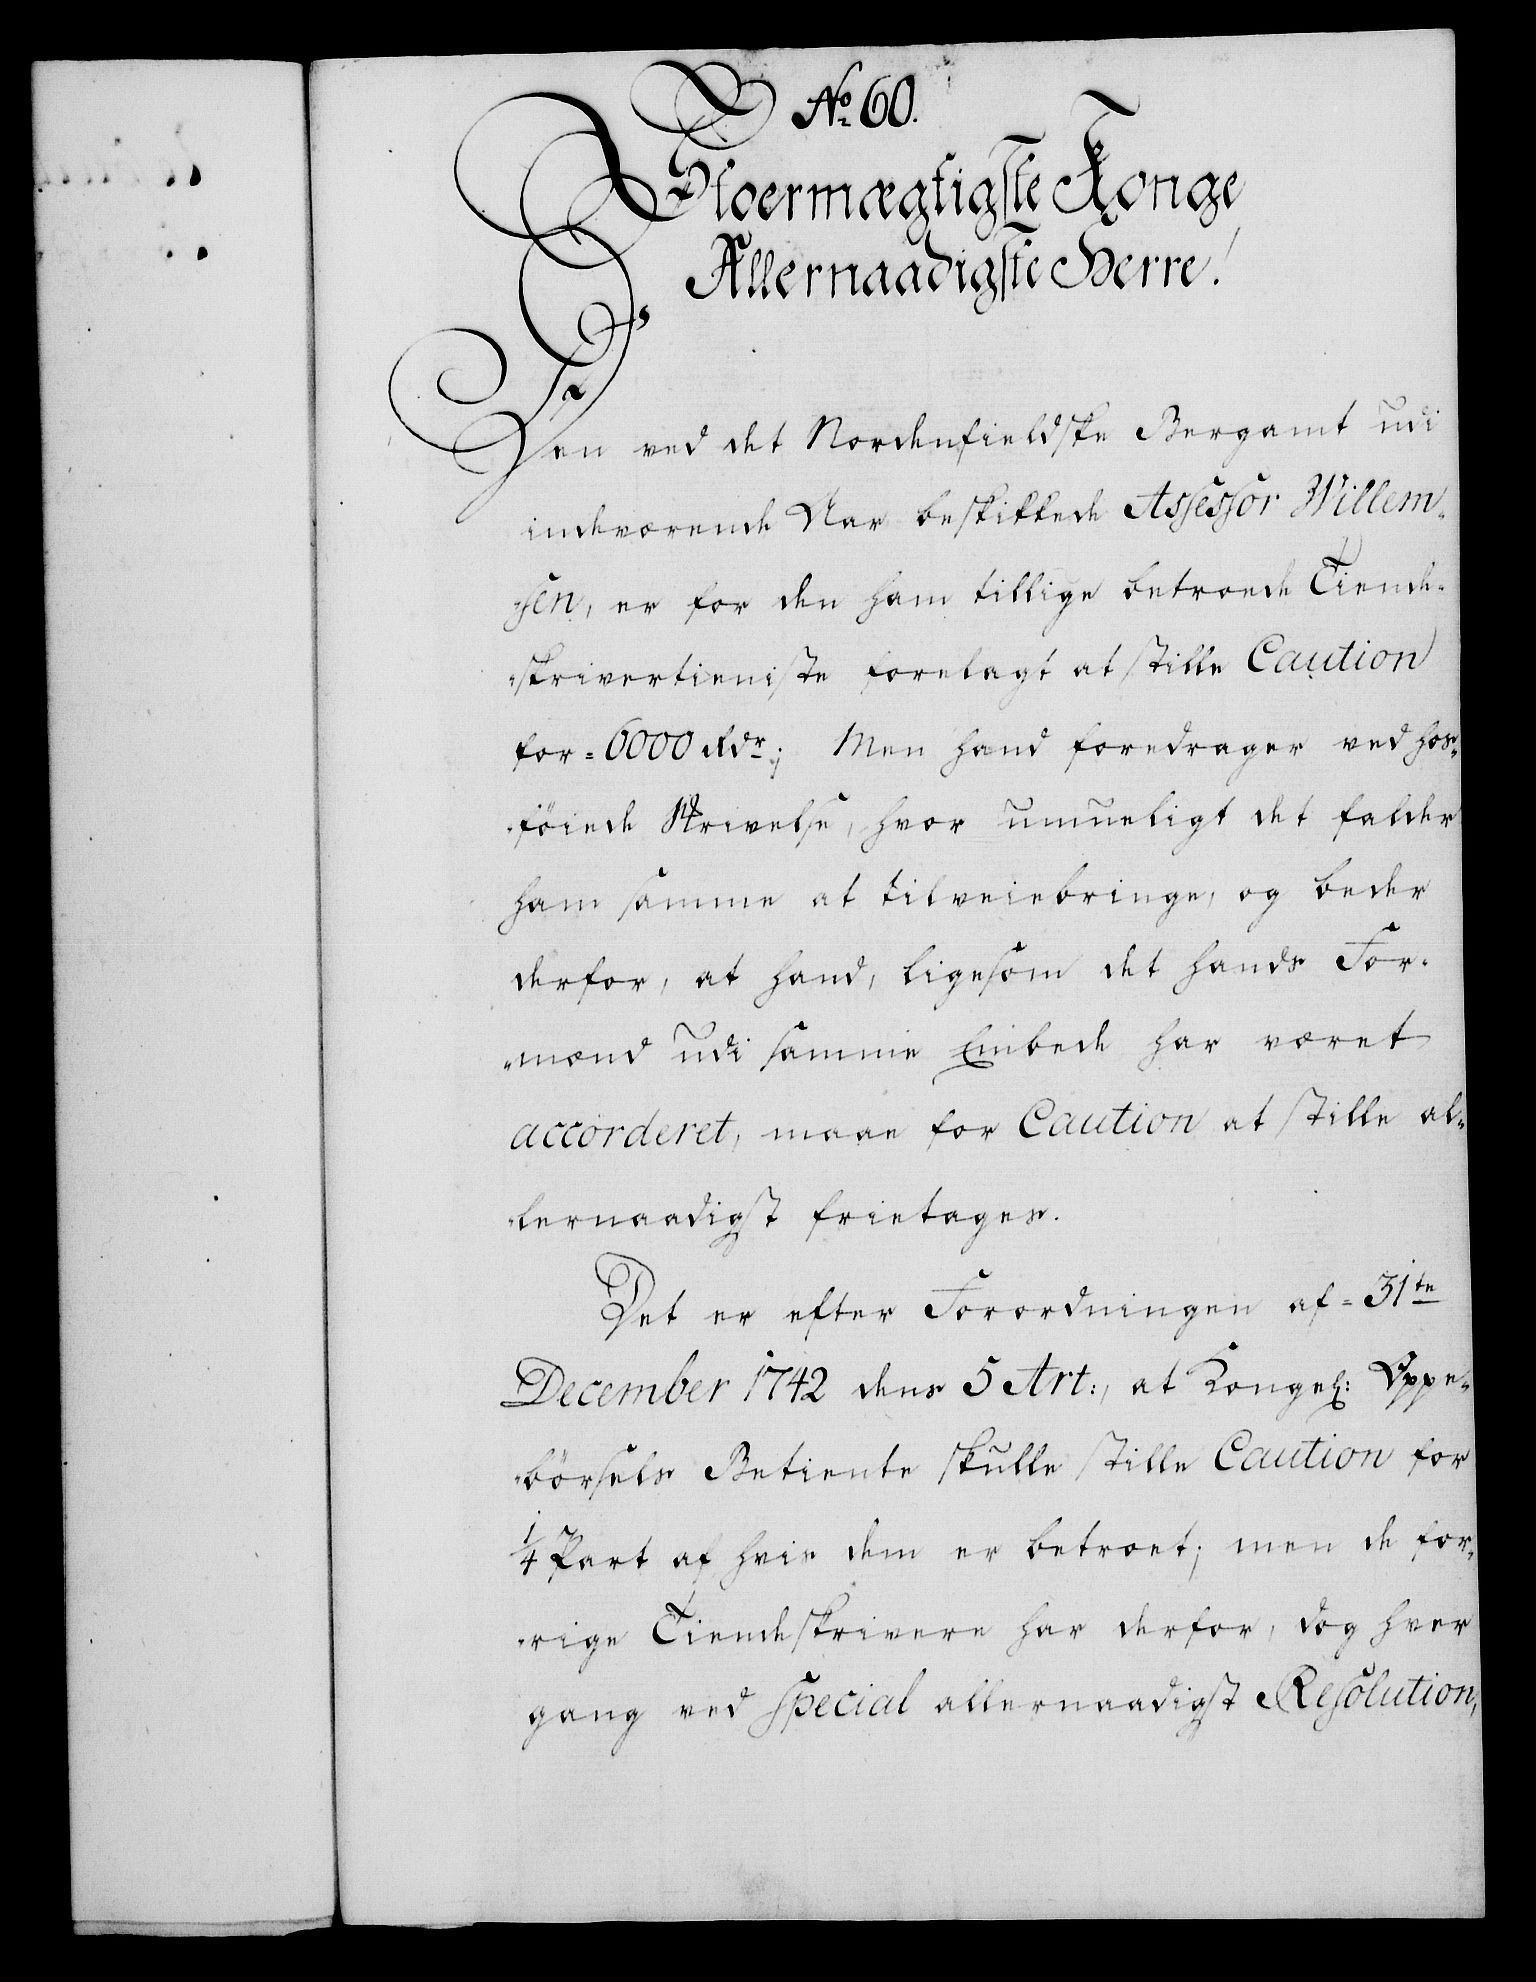 No 60.
Stormægtigste Konge
Allernaadigste Herre!
Den ved det Nordenfieldske Bergamt udi
indeværende Aar beskikkede Assessor Willem-
-sen, er for den ham tillige betroede Tiende-
-skrivertieniste forelagt at stille Caution
for = 6000 Rdr; Men hand foredrager ved hos-
-föiede Skrivelse, hvor umueligt det falder
ham samme at tilveiebringe, og beder
derfor, at hand, ligesom det hands For-
-mænd udi samme Embede har været
accorderet, maae for Caution at stille al-
-lernaadigst frietages.
Det er efter Forordningen af = 31te
December 1742 dens 5 Art:, at Kongel: Oppe-
-börsels Betiente skulle stille Caution for
1/4 Part af hvis dem er betroet; men de for-
-rige Tiendeskrivere har derfor, dog hver
gang ved special allernaadigst Resolution,